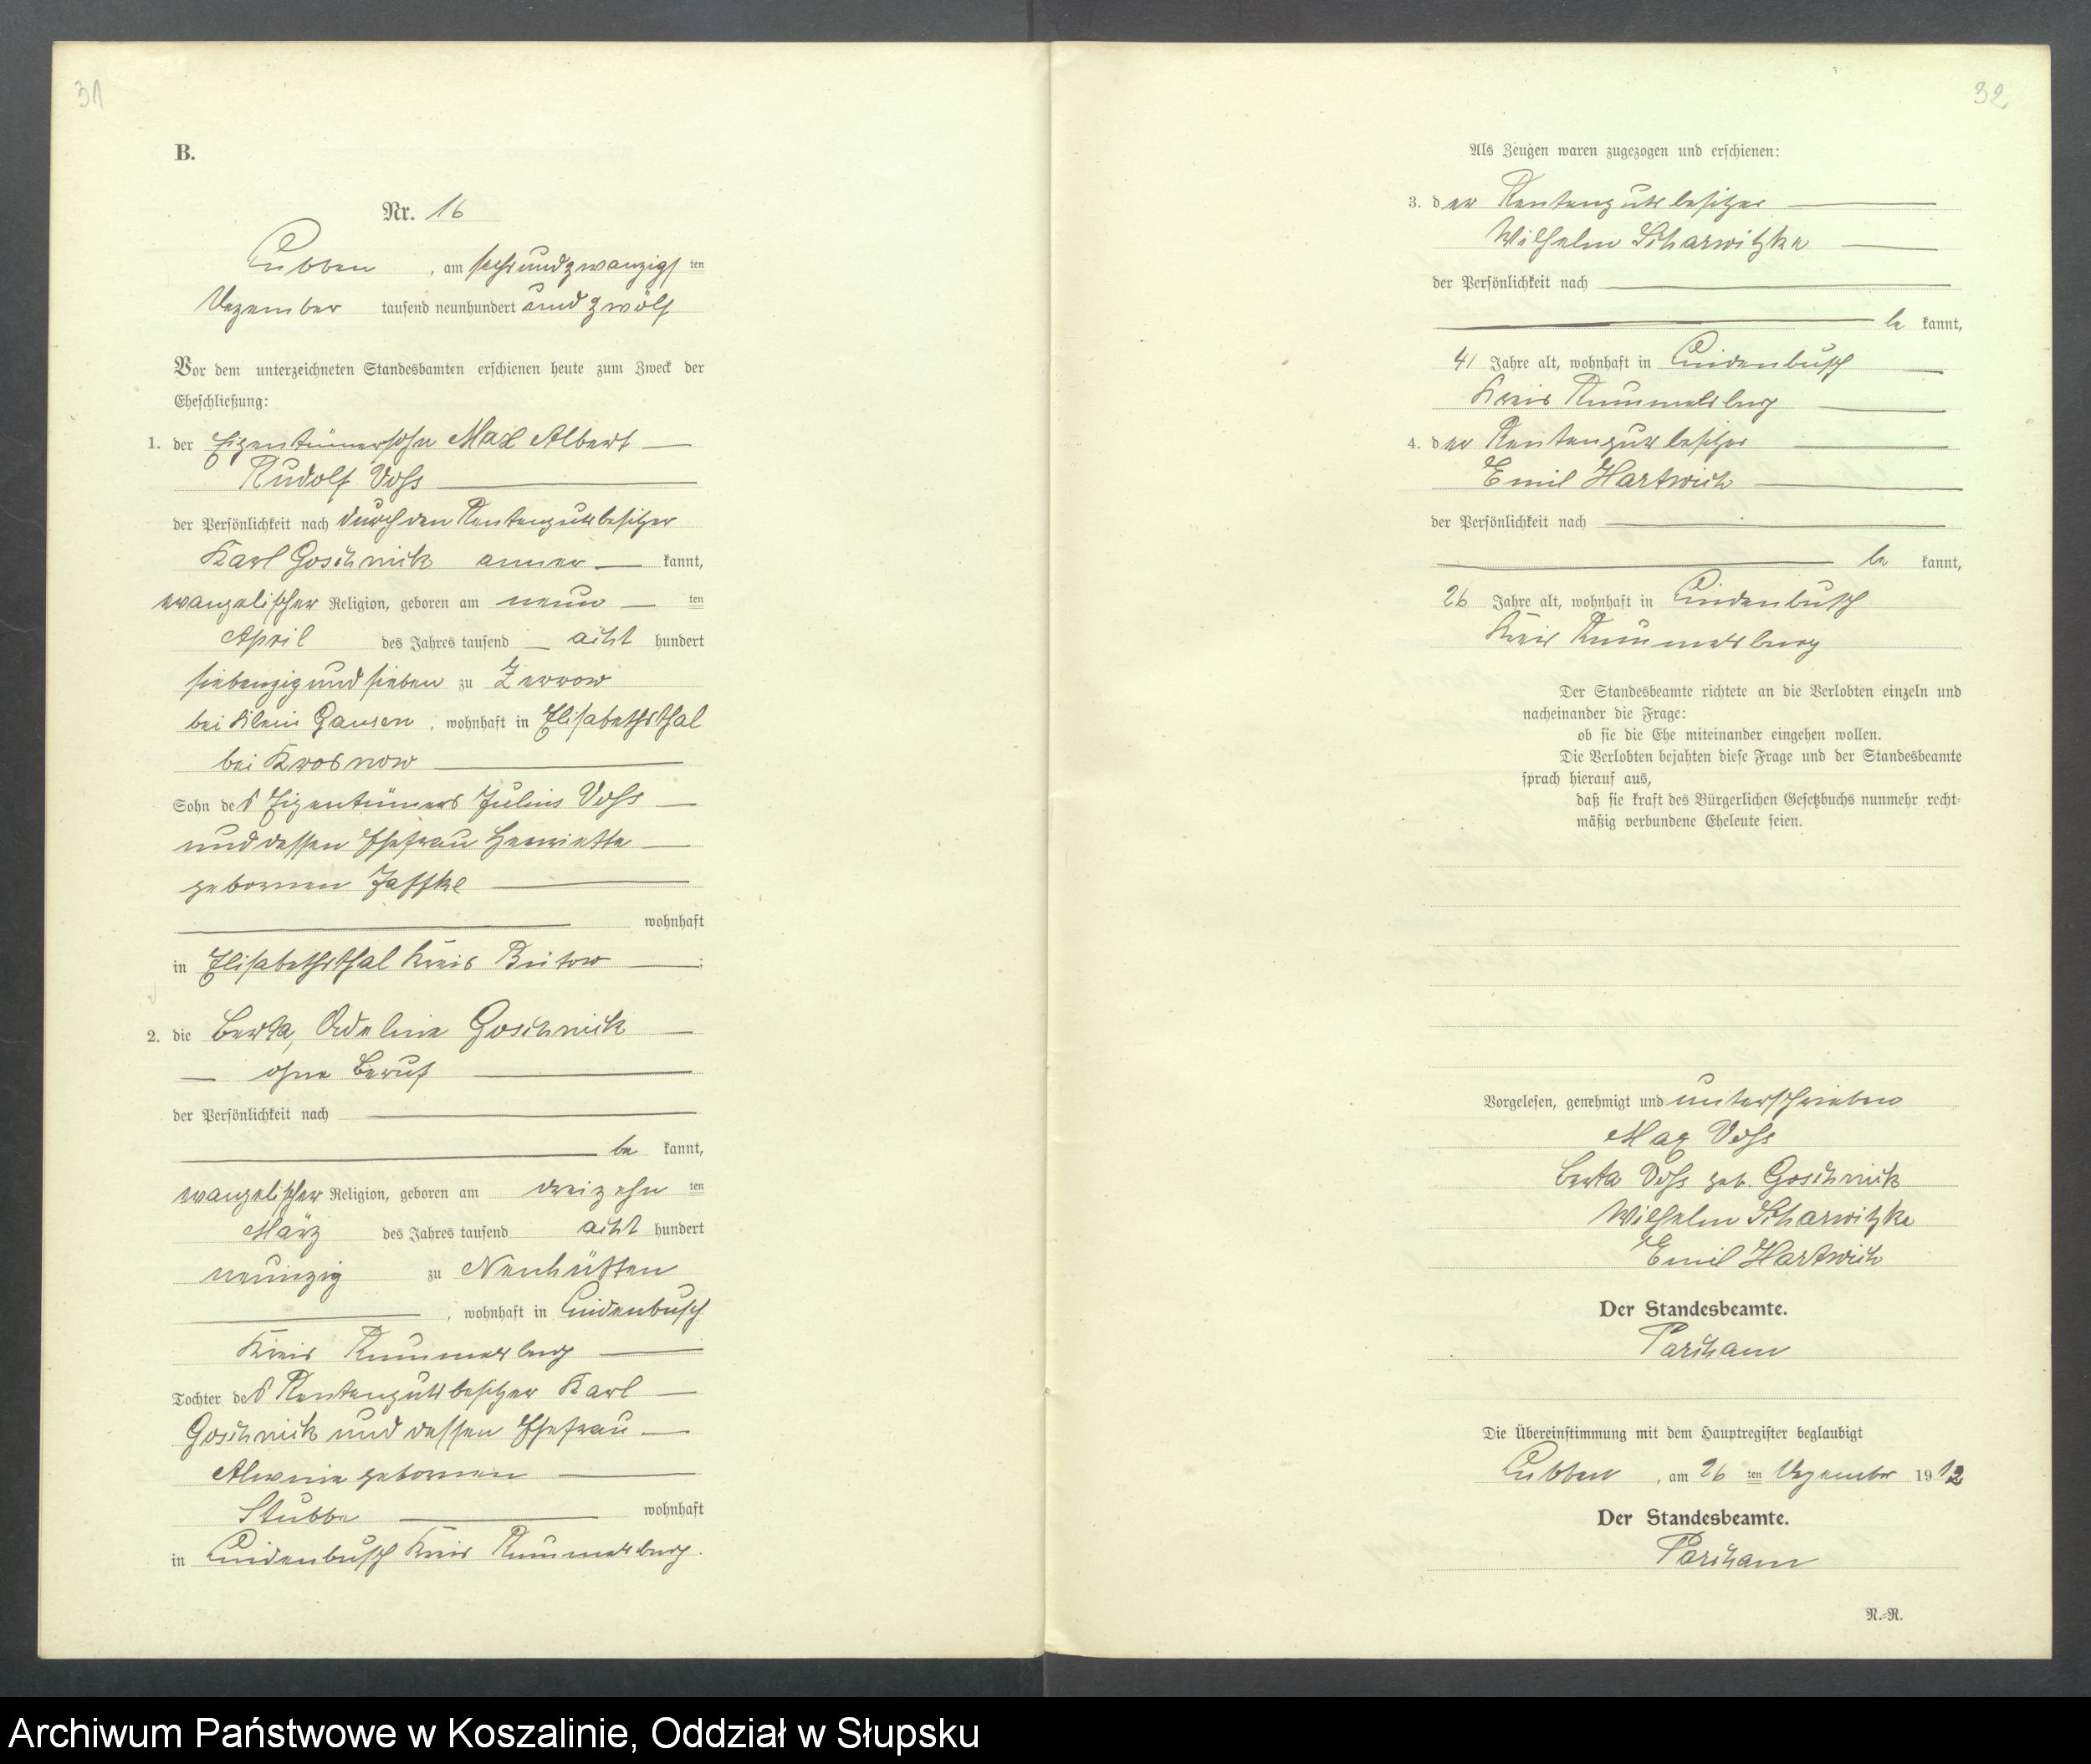 31
B.
Nr. 16
Lubben, am sechsundzwanzigsten
Dezember tausend neunhundert und zwölf
Vor dem unterzeichneten Standesbamten erschienen heute zum Zweck der
Eheschließung:
1. der Eigentümersohn Max Albert
Rudolf Voss
der Persönlichkeit nach durch den Rentengutsbesitzer
Karl Goschnick anner kannt,
evangelischer Religion, geboren am neun ten
April des Jahres tausend acht hundert
siebenzig und sieben zu Zerrow
bei Klein Gansen, wohnhaft in Elisabethsthal
bei Krosnow
Sohn des Eigentümers Julius Voss
und dessen Ehefrau Henriette
gebornen Jaffke
wohnhaft
in Elisabethsthal Kreis Bütow ;
2. die Berta, Adeline Goschnick
ohne Beruf
der Persönlichkeit nach
be kannt,
evangelischer Religion, geboren am dreizehn ten
März des Jahres tausend acht hundert
neunzig zu Neuhütten
, wohnhaft in Lindenbusch
Kreis Rummelsburg
Tochter des Rentengutsbesitzer Karl
Goschnick und dessen Ehefrau
Alwine gebornen
Stubbe wohnhaft
in Lindenbusch Kreis Rummelsburg.
32
Als Zeugen waren zugezogen und erschienen:
3. der Rentengutsbesitzer
Wilhelm Scharwitzke
der Persönlichkeit nach
be kannt,
41 Jahre alt, wohnhaft in Lindenbusch
Kreis Rummelsburg
4. der Rentengutsbesitzer
Emil Hartwich
der Persönlichkeit nach
be kannt,
26 Jahre alt, wohnhaft in Lindenbusch
Kreis Rummelsburg
Der Standesbeamte richtete an die Verlobten einzeln und
nacheinander die Frage:
ob sie die Ehe miteinander eingehen wollen.
Die Verlobten bejahten diese Frage und der Standesbeamte
sprach hierauf aus,
daß sie kraft des Bürgerlichen Gesetzbuchs nunmehr recht-
mäßig verbundene Eheleute seien.
Vorgelesen, genehmigt und unterschrieben
Max Voss
Berta Voss geb. Goschnick
Wilhelm Scharwitzke
Emil Hartwich
Der Standesbeamte.
Parcham
Die Übereinstimmung mit dem Hauptregister beglaubigt
Lubben, am 26 ten Dezember 1912
Der Standesbeamte.
Parcham
N.-R.
Archiwum Państwowe w Koszalinie, Oddział w Słupsku